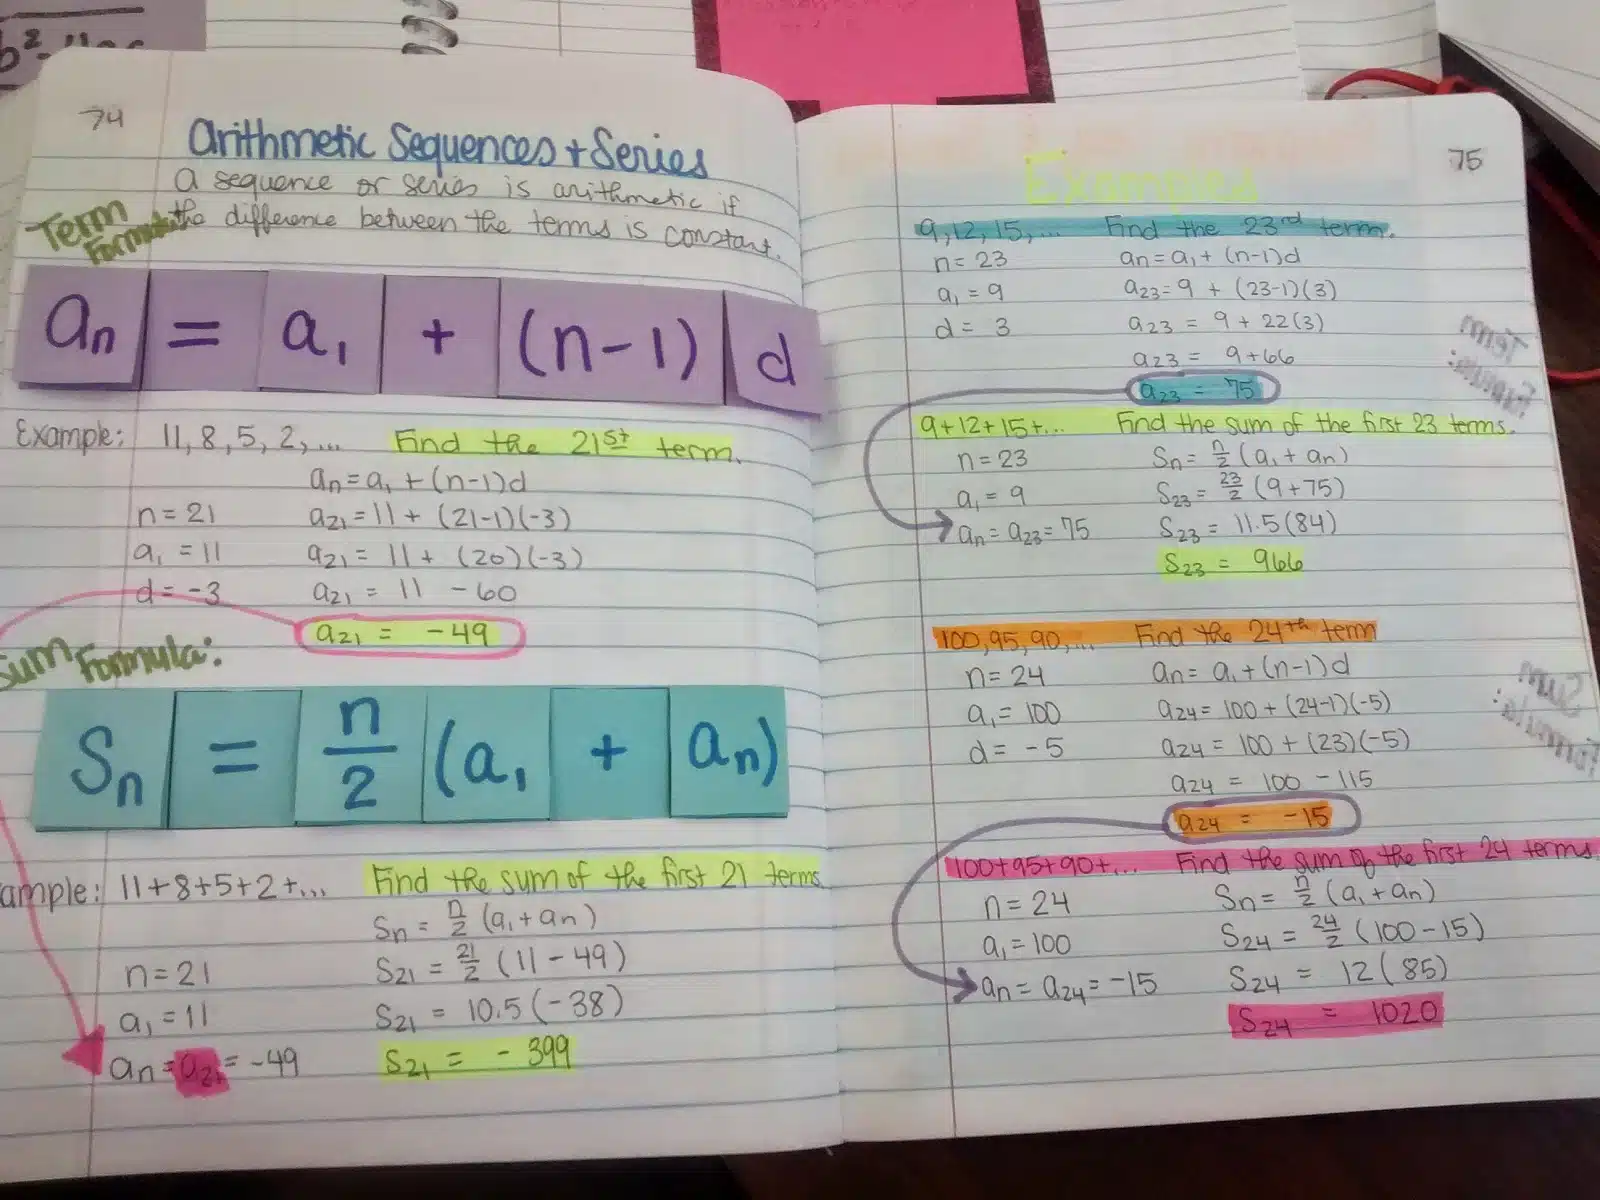 74
Arithmetic Sequences + Series
a sequence or series is arithmetic if
the difference between the terms is constant.
Term
Formula:
an = a₁ + (n-1) d
Example: 11, 8, 5, 2, ... Find the 21st term.
an = a₁ + (n-1)d
n = 21 a₂₁ = 11 + (21-1)(-3)
a₁ = 11 a₂₁ = 11 + (20)(-3)
d = -3 a₂₁ = 11 - 60
a₂₁ = -49
Sum Formula:
Sn = n/2 (a₁ + an)
ample: 11+8+5+2+... Find the sum of the first 21 terms
Sn = n/2 (a₁ + an)
n = 21 S₂₁ = 21/2 (11 - 49)
a₁ = 11 S₂₁ = 10.5 (-38)
an = a₂₁ = -49 S₂₁ = -399
75
Examples
9, 12, 15, ... Find the 23rd term.
n = 23 an = a₁ + (n-1)d
a₁ = 9 a₂₃ = 9 + (23-1)(3)
d = 3 a₂₃ = 9 + 22(3)
a₂₃ = 9 + 66
a₂₃ = 75
9+12+15+... Find the sum of the first 23 terms.
n = 23 Sn = n/2 (a₁ + an)
a₁ = 9 S₂₃ = 23/2 (9+75)
an = a₂₃ = 75 S₂₃ = 11.5(84)
S₂₃ = 966
100, 95, 90, ... Find the 24th term
n = 24 an = a₁ + (n-1)d
a₁ = 100 a₂₄ = 100 + (24-1)(-5)
d = -5 a₂₄ = 100 + (23)(-5)
a₂₄ = 100 - 115
a₂₄ = -15
100+95+90+... Find the sum of the first 24 terms
n = 24 Sn = n/2 (a₁ + an)
a₁ = 100 S₂₄ = 24/2 (100 - 15)
an = a₂₄ = -15 S₂₄ = 12 (85)
S₂₄ = 1020